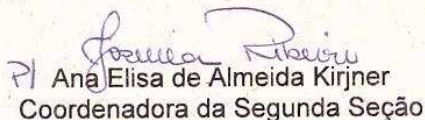 Joanna Ribeiro
P/ Ana Elisa de Almeida Kirjner
Coordenadora da Segunda Seção